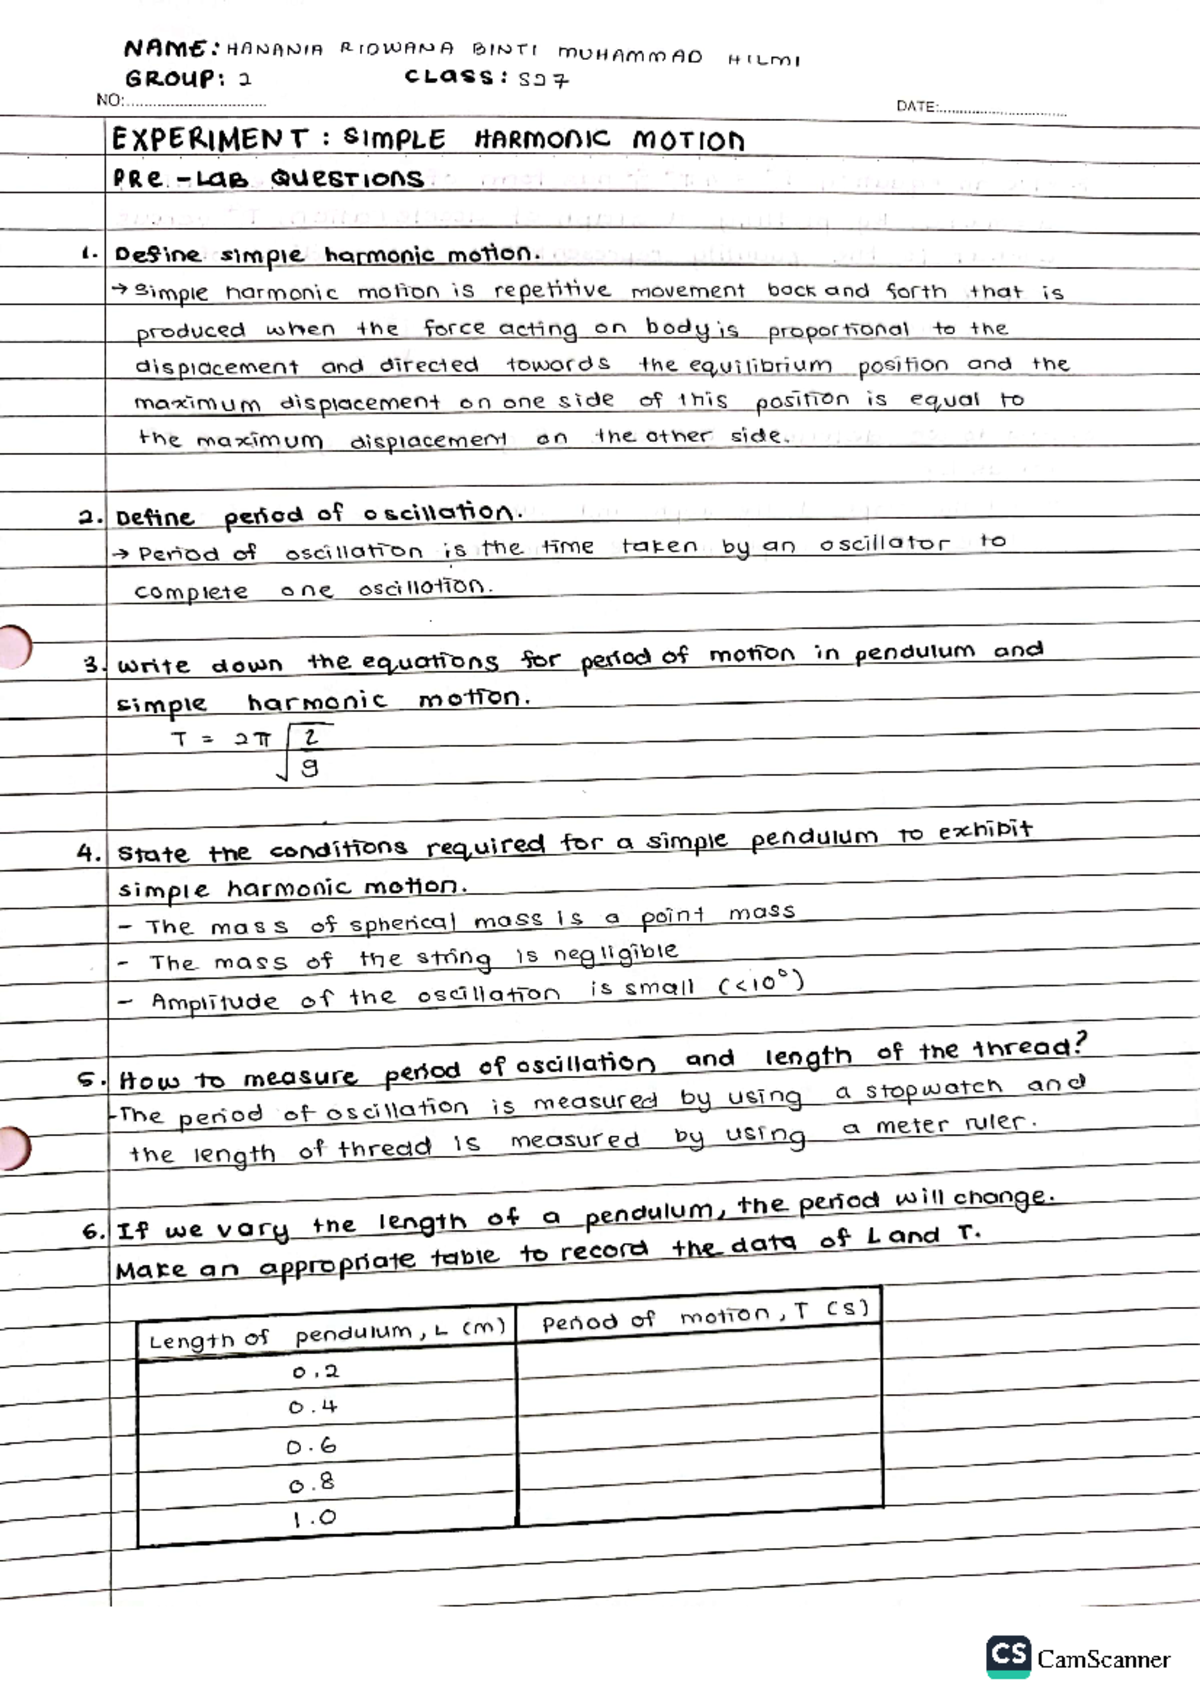 NAME: HANANIA RIDWANA BINTI MUHAMMAD HILMI
GROUP: 2 CLASS: S27
NO: DATE:
EXPERIMENT: SIMPLE HARMONIC MOTION
PRE-LAB QUESTIONS
1. Define simple harmonic motion.
→ Simple harmonic motion is repetitive movement back and forth that is
produced when the force acting on body is proportional to the
displacement and directed towards the equilibrium position and the
maximum displacement on one side of this position is equal to
the maximum displacement on the other side.
2. Define period of oscillation.
→ Period of oscillation is the time taken by an oscillator to
complete one oscillation.
3. Write down the equations for period of motion in pendulum and
simple harmonic motion.
T = 2π √(l/g)
4. State the conditions required for a simple pendulum to exhibit
simple harmonic motion.
- The mass of spherical mass is a point mass
- The mass of the string is negligible
- Amplitude of the oscillation is small (<10°)
5. How to measure period of oscillation and length of the thread?
-The period of oscillation is measured by using a stopwatch and
the length of thread is measured by using a meter ruler.
6. If we vary the length of a pendulum, the period will change.
Make an appropriate table to record the data of L and T.
Length of pendulum, L (m) Period of motion, T (s)
0.2
0.4
0.6
0.8
1.0
CS CamScanner